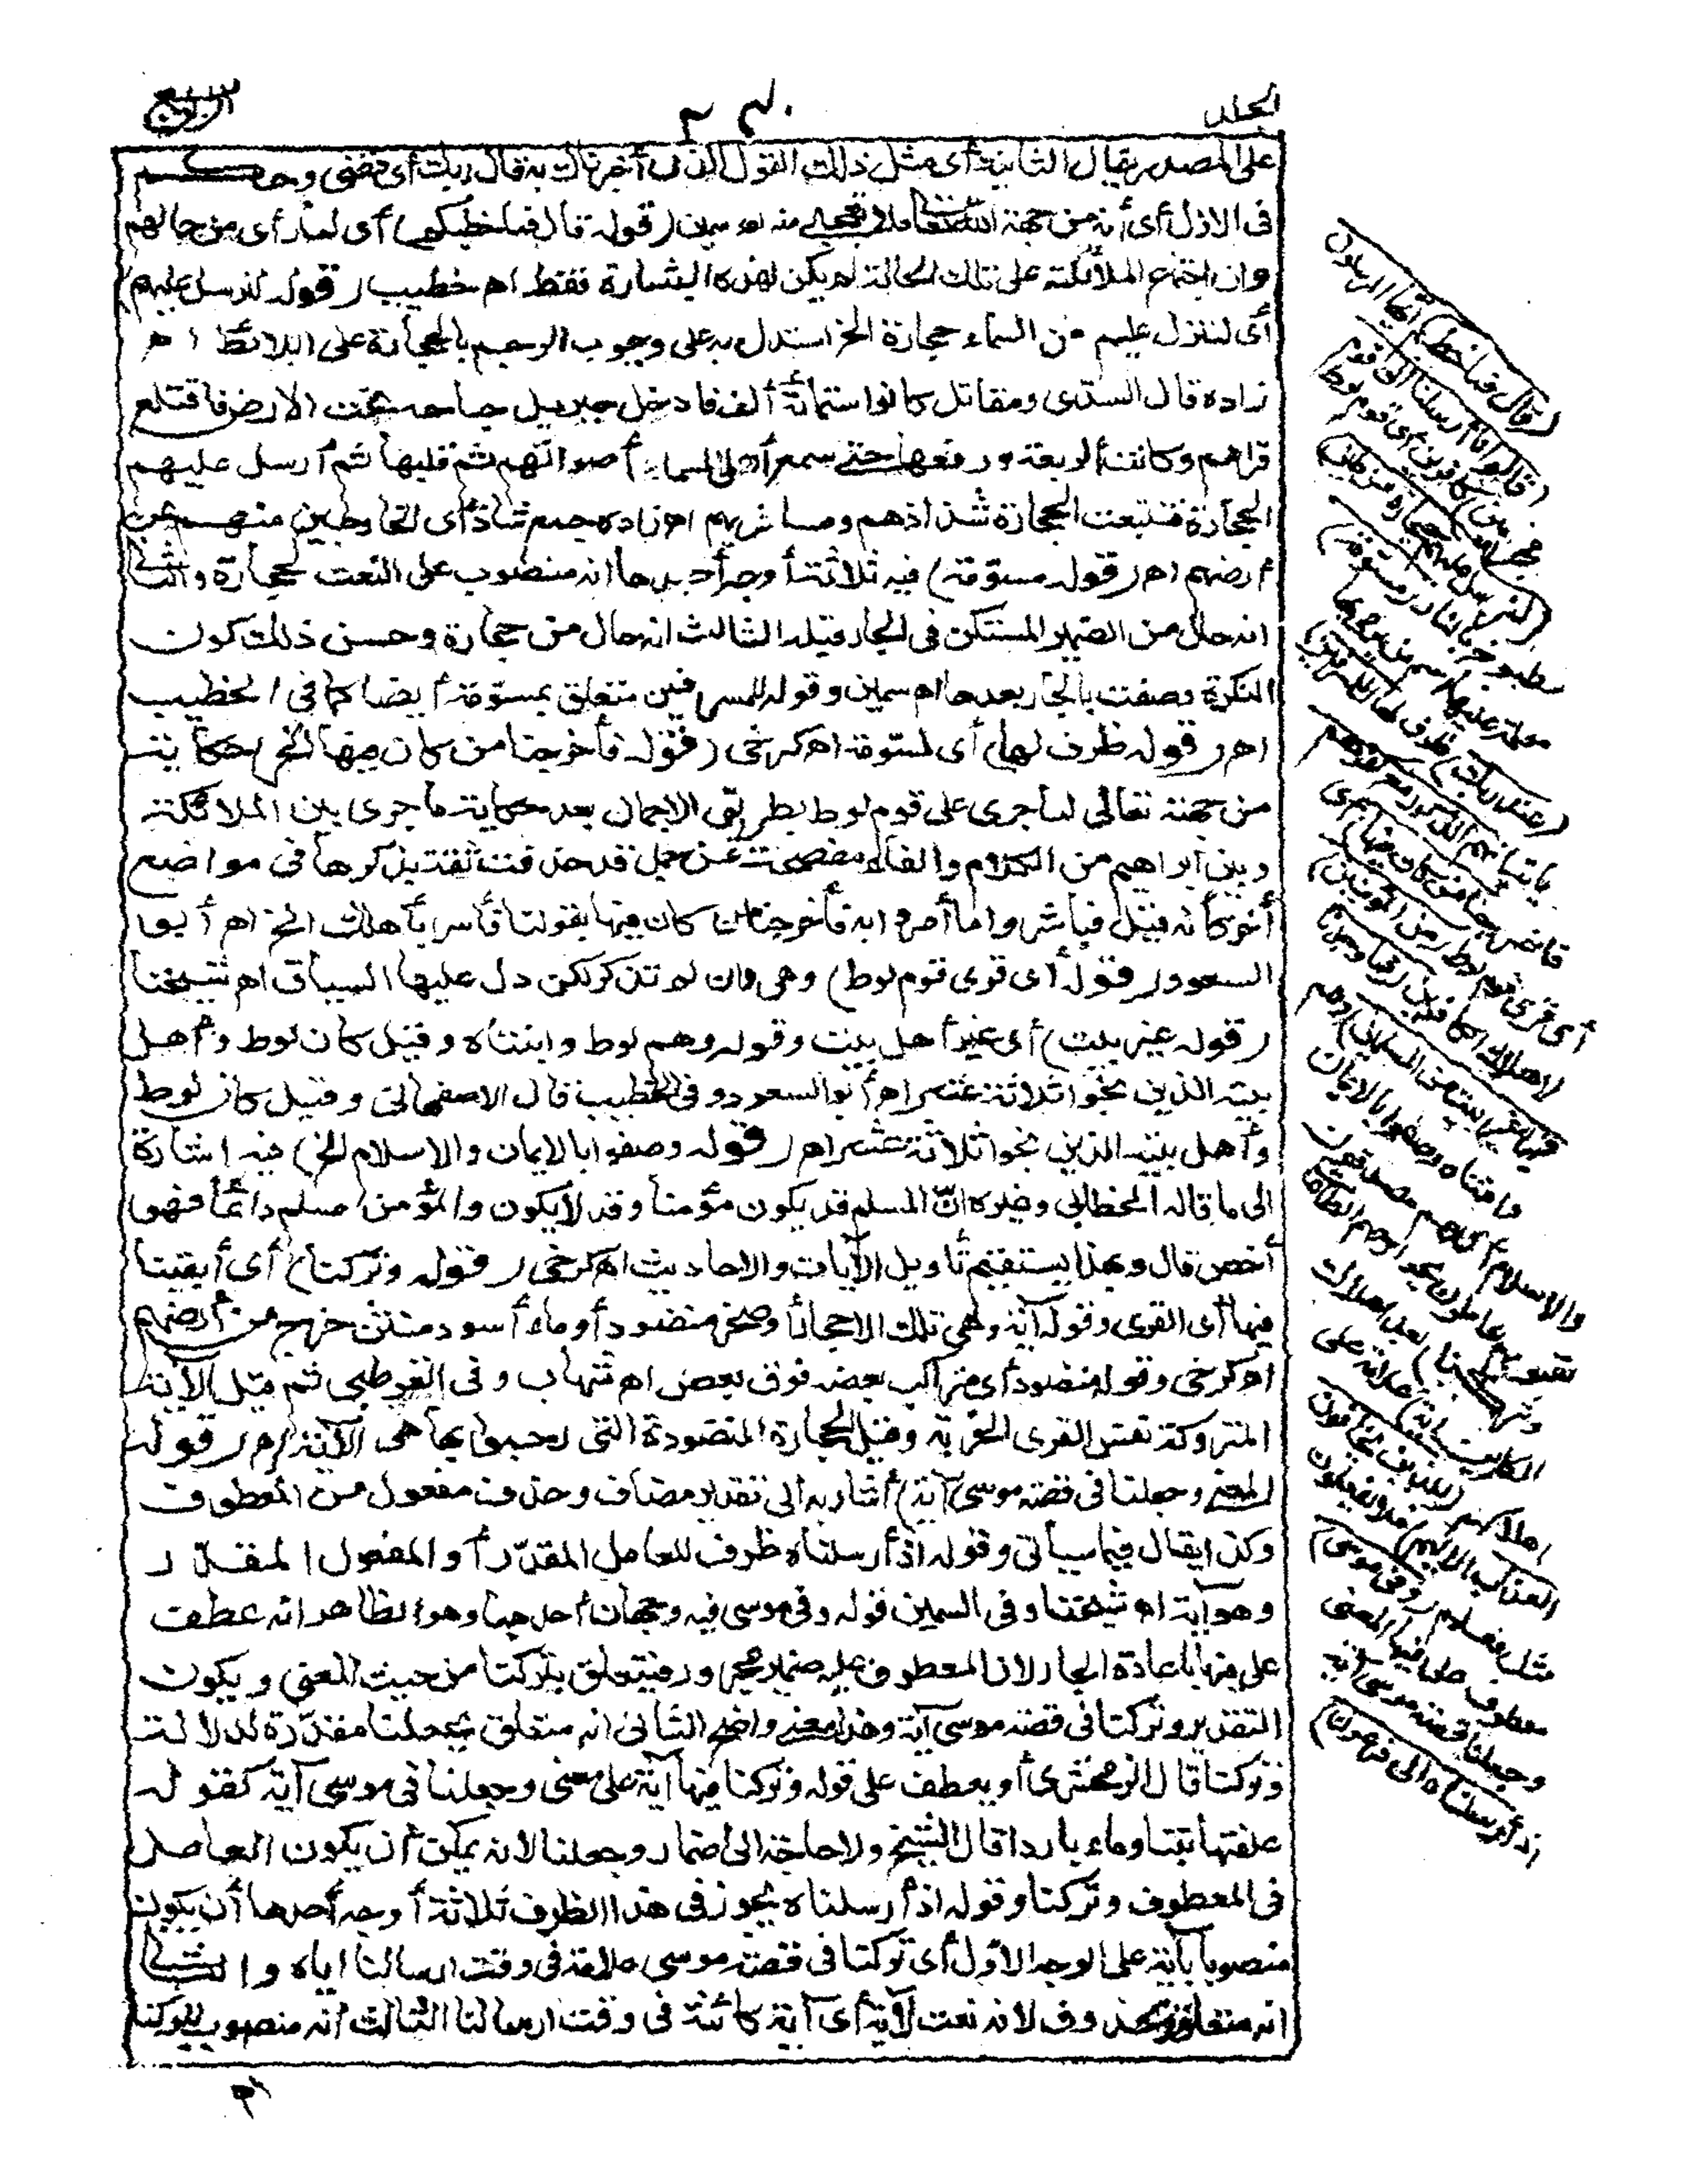 الجلد
٢٠٤
الرابع
على المصدر بقال الثانية أى مثل ذلك القول الذى أخبرناك به قال ربك أى قضى وحكم
فى الازل أى أنه من جهة الله تعالى فلا تعجبى منه اه سمين (قوله قال فما خطبكم) أى لما رأى من حالهم
وان اجتماع الملائكة على تلك الحالة لم يكن لهذه البشارة فقط اه خطيب (قوله لنرسل عليهم)
أى لننزل عليهم من السماء حجارة الخ استدل به على وجوب الرجم بالحجارة على اللائط اه
زاده قال السدى ومقاتل كانوا ستمائة ألف فادخل جبريل جناحه تحت الارض فاقتلع
قراهم وكانت أربعة ورفعها حتى سمع أهل السماء أصواتهم ثم قلبها ثم أرسل عليهم
الحجارة فتتبعت الحجارة شذاذهم ومسافريهم اه زاده جمع شاذ أى الخارجين منهم عن
أرضهم اه (قوله مسوّمة) فيه ثلاثة أوجه أحدها انه منصوب على النعت لحجارة والثانى
انه حال من الضمير المستكن فى الجار قبله الثالث انه حال من حجارة وحسن ذلك كون
النكرة وصفت بالجار بعدها اه سمين وقوله للمسرفين متعلق بمسوّمة أيضا كما فى الخطيب
اه (قوله ظرف لها) أى لمسوّمة اه كرخى (قوله فأخرجنا من كان فيها الخ) حكاية
من جهته تعالى لما جرى على قوم لوط بطريق الاجمال بعد حكاية ما جرى بين الملائكة
وبين ابراهيم من الكلام والفاء مفصحة عن جمل قد حذفت ثقة بذكرها فى مواضع
أخر كأنه قيل فباشروا ما أمروا به فأخرجنا من كان فيها بقولنا فأسر بأهلك الخ اه أبو
السعود (قوله أى قرى قوم لوط) وهى وان لم تذكر لكن دل عليها السياق اه شيخنا
(قوله غير بيت) أى غير أهل بيت وقوله وهم لوط وابنتاه وقيل كان لوط وأهل
بيته الذين نجوا ثلاثة عشر اه أبو السعود وفى الخطيب قال الاصفهانى وقيل كان لوط
وأهل بيته الذين نجوا ثلاثة عشر اه (قوله وصفوا بالايمان والاسلام الخ) فيه اشارة
الى ما قاله الخطابى وغيره انّ المسلم قد يكون مؤمنا وقد لا يكون والمؤمن مسلم دائما فهو
أخص قال وبهذا يستقيم تأويل الآيات والاحاديث اه كرخى (قوله وتركنا) أى أبقينا
فيها أى القرى وقوله آية وهى تلك الاحجار أو صخر منضود أو ماء أسود منتن خرج من أرضهم
اه كرخى وقوله منضود أى متراكب بعضه فوق بعض اه شهاب وفى القرطبى ثم قيل الآية
المتروكة نفس القرى الخربة وقيل الحجارة المنضودة التى رجموا بها هى الآية اه (قوله
المعنى وجعلنا فى قصة موسى آية) أشار به الى تقدير مضاف وحذف مفعول من المعطوف
وكذا يقال فيما سيأتى وقوله اذ أرسلناه ظرف للعامل المقدّر أو المفعول المقدّر
وهو آية اه شيخنا وفى السمين قوله وفى موسى فيه وجهان أحدهما وهو الظاهر انه عطف
على فيها باعادة الجار لان المعطوف عليه ضمير مجرور فيتعلق بتركنا من حيث المعنى ويكون
التقدير وتركنا فى قصة موسى آية وهذا معنى واضح الثانى انه متعلق بجعلنا مقدّرة لدلالة
وتركنا قال الزمخشرى أو يعطف على قوله وتركنا فيها آية على معنى وجعلنا فى موسى آية كقوله
علفتها تبنا وماء باردا قال الشيخ ولا حاجة الى اضمار وجعلنا لانه يمكن أن يكون العامل
فى المعطوف وتركنا وقوله اذ أرسلناه يجوز فى هذا الظرف ثلاثة أوجه أحدها أن يكون
منصوبا بآية على الوجه الاوّل أى تركنا فى قصة موسى علامة فى وقت ارسالنا اياه والثانى
انه متعلق بمحذوف لانه نعت لآية أى آية كائنة فى وقت ارسالنا الثالث أنه منصوب بتركنا
(قال فما خطبكم) أيها المرسلون
(قالوا انا أرسلنا الى قوم
مجرمين) كافرين أى قوم لوط
(لنرسل عليهم حجارة من طين)
مطبوخ بالنار (مسوّمة)
معلمة عليها اسم من يرمى بها
(عند ربك) ظرف لها (للمسرفين)
باتيانهم الذكور مع كفرهم
(فأخرجنا من كان فيها)
أى قرى قوم لوط (من المؤمنين)
لاهلاك الكافرين (فما وجدنا
فيها غير بيت من المسلمين) وهم
وابنتاه وصفوا بالايمان
والاسلام أى هم مصدقون
بقلوبهم عاملون بجوارحهم الطاعات
(وتركنا فيها) بعد اهلاك
الكافرين (آية) علامة على
اهلاكهم (للذين يخافون
العذاب الاليم) فلا يفعلون
مثل فعلهم (وفى موسى)
معطوف على فيها المعنى
وجعلنا فى قصة موسى آية
(اذ أرسلناه الى فرعون)